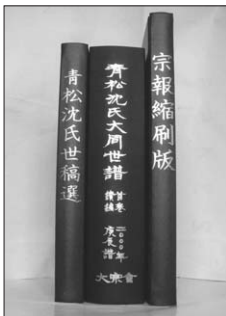 青松沈氏世稿選
青松沈氏大同世譜
首卷
續編
二000年
庚辰譜
大宗會
宗報縮刷版